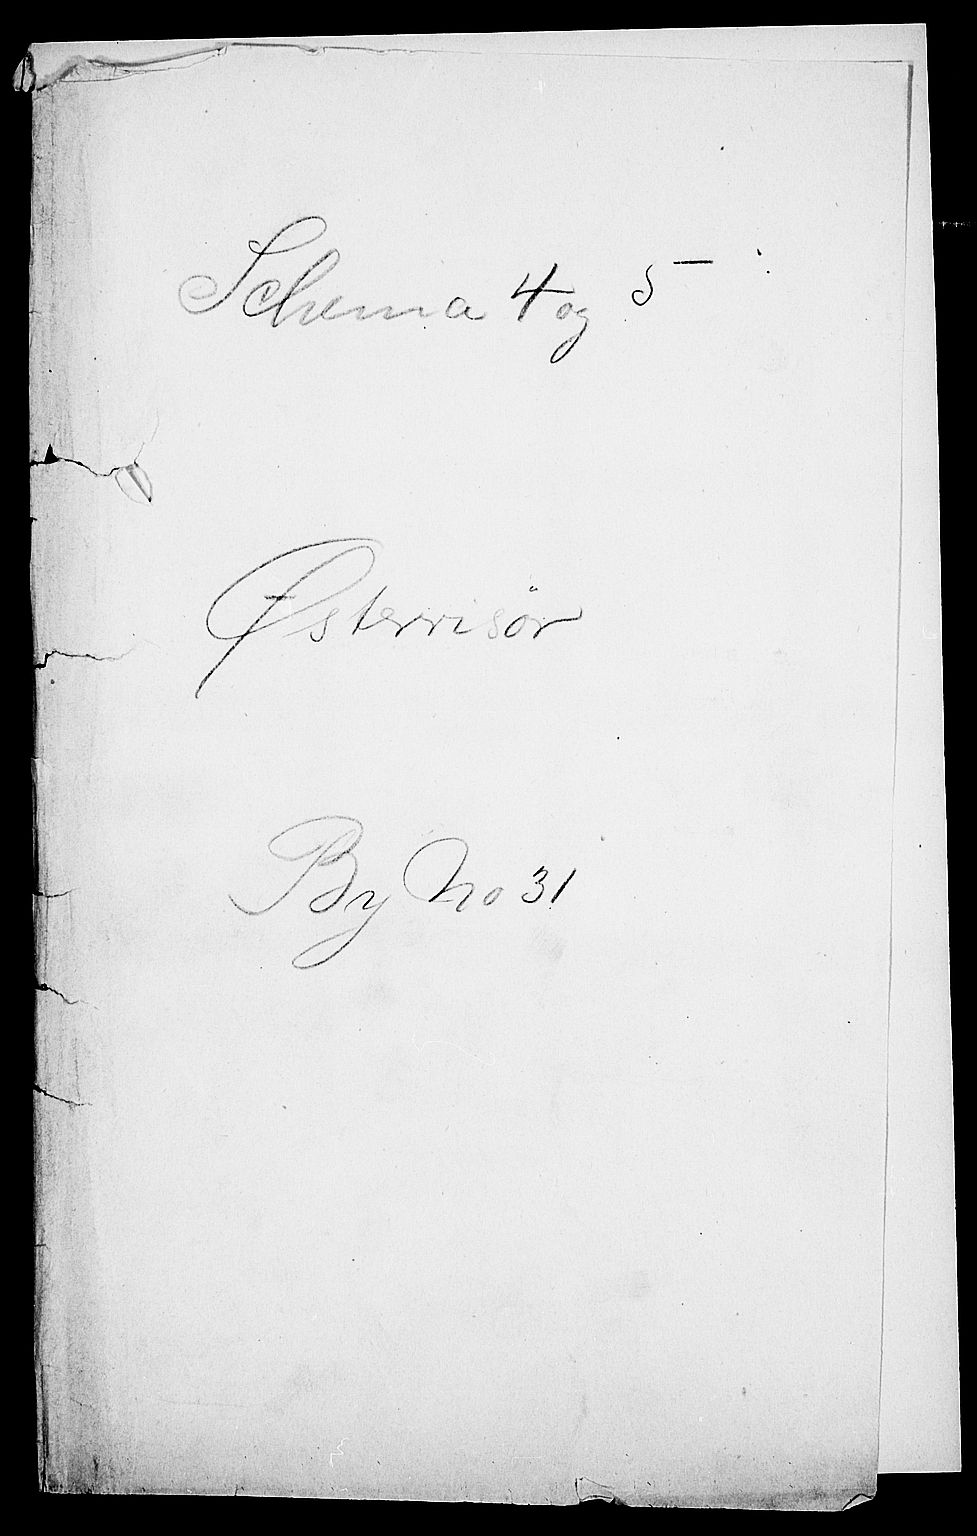 Schema 4 og 5
Østerrisör
By No 31